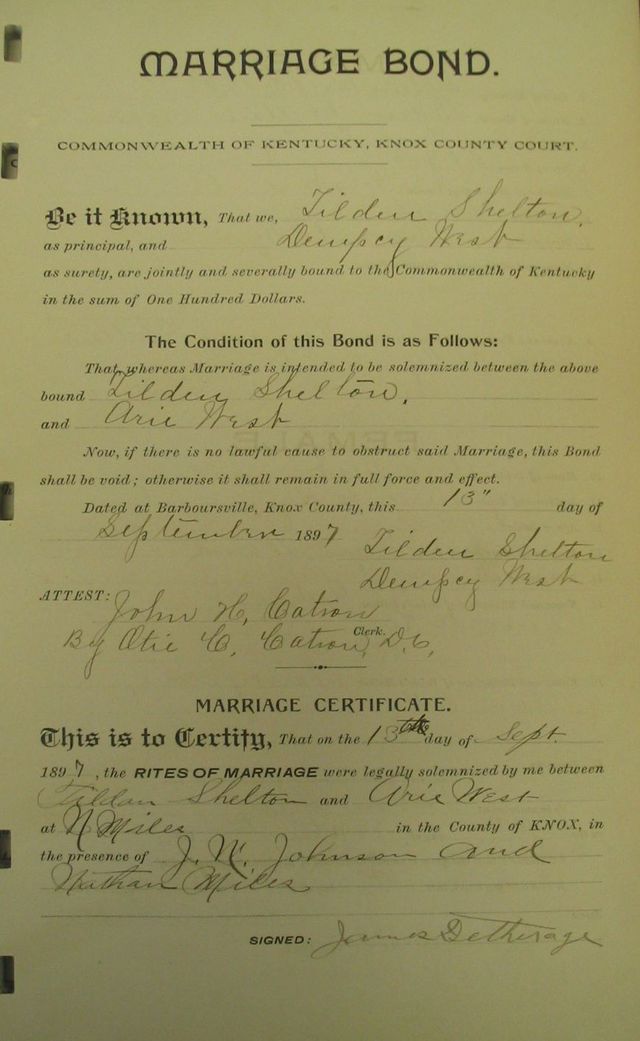 MARRIAGE BOND.
COMMONWEALTH OF KENTUCKY, KNOX COUNTY COURT.
Be it Known, That we, Tilden Shelton,
as principal, and Dempcy West
as surety, are jointly and severally bound to the Commonwealth of Kentucky
in the sum of One Hundred Dollars.
The Condition of this Bond is as Follows:
That, whereas Marriage is intended to be solemnized between the above
bound Tilden Shelton,
and Arie West
Now, if there is no lawful cause to obstruct said Marriage, this Bond
shall be void; otherwise it shall remain in full force and effect.
Dated at Barboursville, Knox County, this 13" day of
September 1897
Tilden Shelton
Dempcy West
ATTEST: John H. Catron
By Otie C. Catron, Clerk. D.C.
MARRIAGE CERTIFICATE.
This is to Certify, That on the 13th day of Sept.
1897, the RITES OF MARRIAGE were legally solemnized by me between
Tildan Shelton and Arie West
at N Miles in the County of KNOX, in
the presence of J. N. Johnson and
Nathan Miles
SIGNED: James Detherage